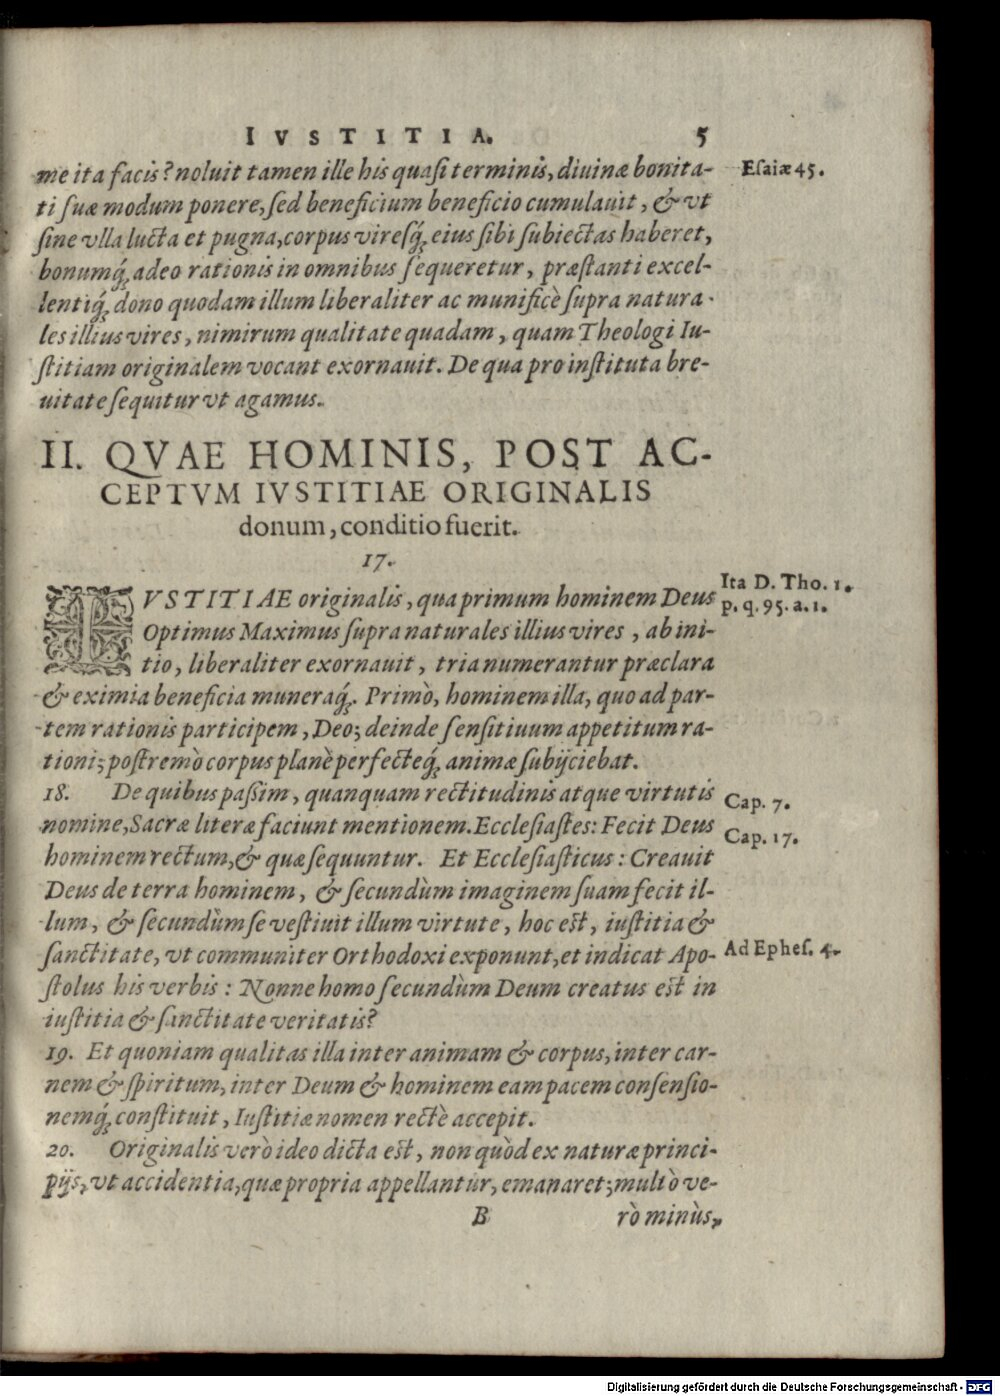 IVSTITIA. 5
me ita facis? noluit tamen ille his quasi terminis, diuinæ bonita- Esaiæ 45.
ti suæ modum ponere, sed beneficium beneficio cumulauit, & vt
sine vlla lucta et pugna, corpus viresq́; eius sibi subiectas haberet,
bonumq́; adeo rationis in omnibus sequeretur, præstanti excel-
lentiq́; dono quodam illum liberaliter ac munificè supra natura-
les illius vires, nimirum qualitate quadam, quam Theologi Iu-
stitiam originalem vocant exornauit. De qua pro instituta bre-
uitate sequitur vt agamus.
II. QVAE HOMINIS, POST AC-
CEPTVM IVSTITIAE ORIGINALIS
donum, conditio fuerit.
17.
IVSTITIAE originalis, qua primum hominem Deus Ita D. Tho. 1.
Optimus Maximus supra naturales illius vires, ab ini- p. q. 95. a. 1.
tio, liberaliter exornauit, tria numerantur præclara
& eximia beneficia muneraq́;. Primò, hominem illa, quo ad par-
tem rationis participem, Deo; deinde sensitiuum appetitum ra-
tioni; postremò corpus planè perfecteq́; animæ subijciebat.
18. De quibus passim, quanquam rectitudinis atque virtutis Cap. 7.
nomine, Sacræ literæ faciunt mentionem. Ecclesiastes: Fecit Deus Cap. 17.
hominem rectum, & quæ sequuntur. Et Ecclesiasticus: Creauit
Deus de terra hominem, & secundùm imaginem suam fecit il-
lum, & secundùm se vestiuit illum virtute, hoc est, iustitia &
sanctitate, vt communiter Orthodoxi exponunt, et indicat Apo- Ad Ephes. 4.
stolus his verbis: Nonne homo secundùm Deum creatus est in
iustitia & sanctitate veritatis?
19. Et quoniam qualitas illa inter animam & corpus, inter car-
nem & spiritum, inter Deum & hominem eam pacem consensio-
nemq́; constituit, Iustitiæ nomen rectè accepit.
20. Originalis verò ideo dicta est, non quòd ex naturæ princi-
pijs, vt accidentia, quæ propria appellantur, emanaret; multò ve-
B rò minùs,
Digitalisierung gefördert durch die Deutsche Forschungsgemeinschaft - DFG